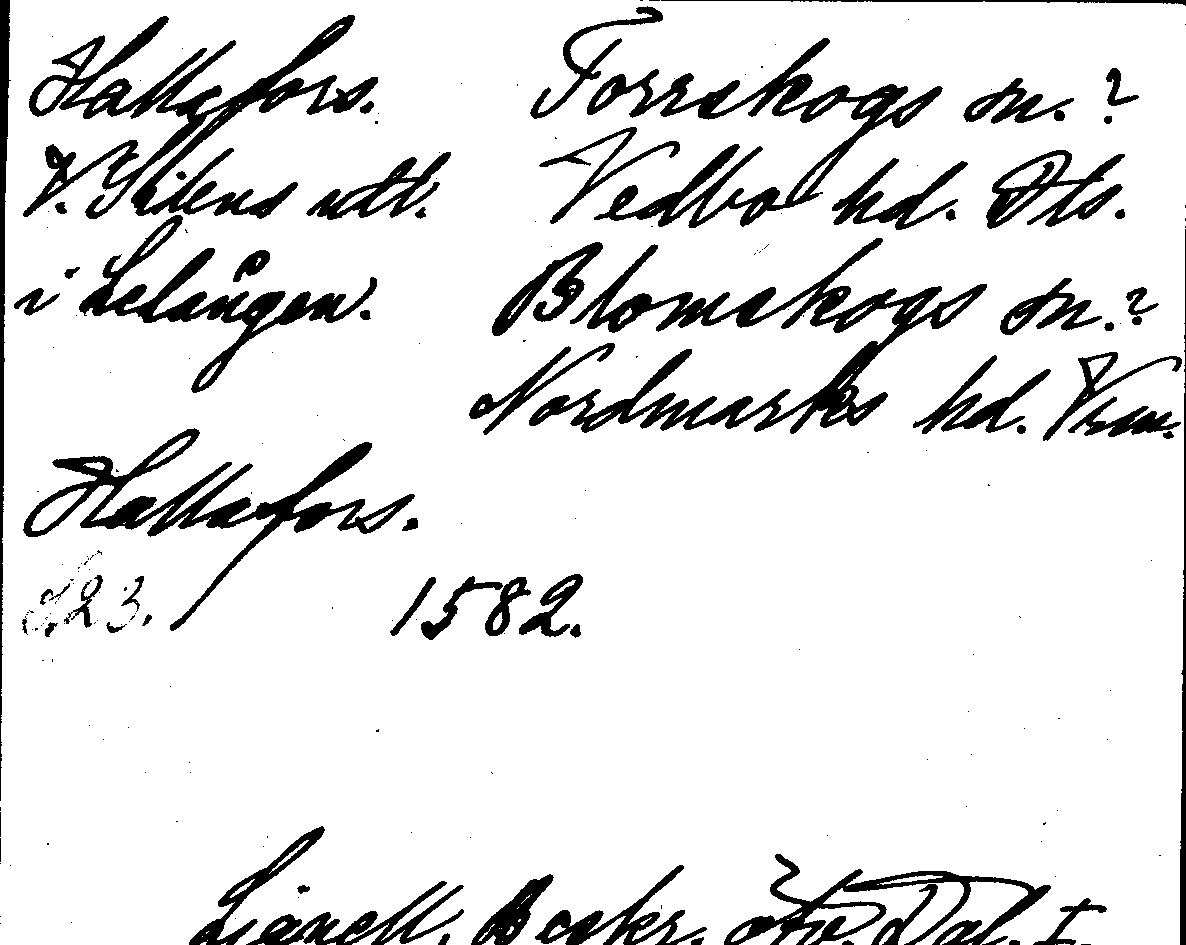 Hallafors. Torrskogs sn.?
V. Silens utl. Vedbo hd. Dls.
i Lelången. Blomskogs sn.?
Nordmarks hd. Vrm.
Hallafors.
S. 23. 1582.
Lignell, Beskr. öfv. Dal. I.